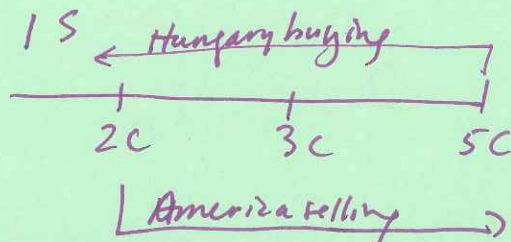 1 S Hungary buying
2C 3C 5C
America selling